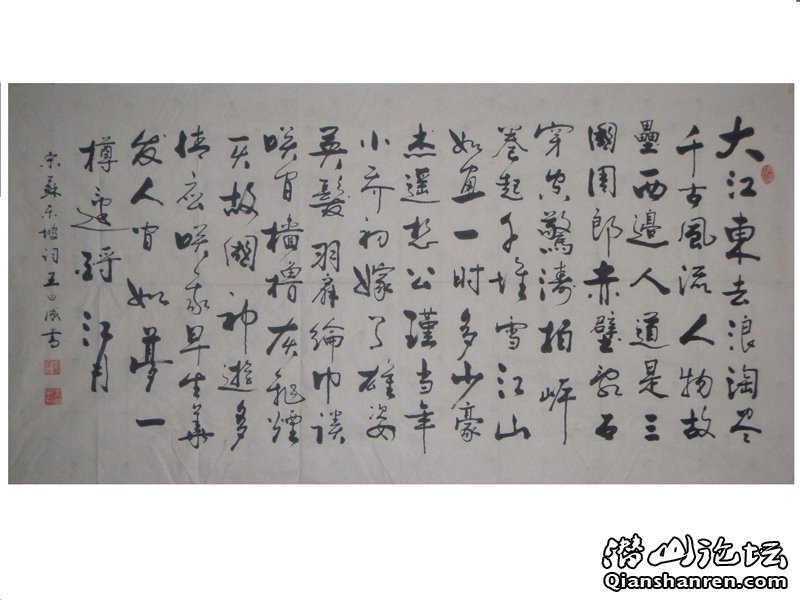 大江東去浪淘尽
千古風流人物故
壘西邊人道是三
國周郎赤壁乱石
穿空驚濤拍岸
卷起千堆雪江山
如画一时多少豪
杰遥想公瑾当年
小乔初嫁了雄姿
英髮羽扇綸巾談
咲间檣櫓灰飛煙
灭故國神遊多
情应咲我早生華
发人间如夢一
樽還酹江月
宋蘇东坡词王成书
潜山论坛
Qianshanren.com